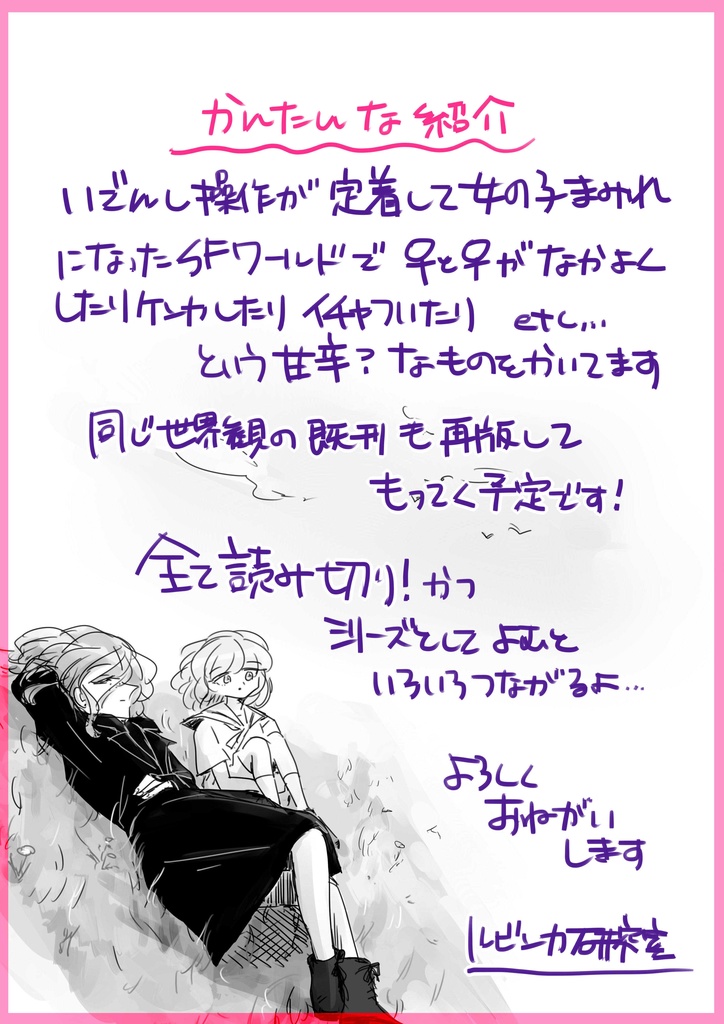 かんたんな紹介
いでんし操作が定着して女の子まみれ
になったSFワールドで 早と早がなかよく
したりケンカしたりイチャついたり etc...
という甘辛?なものをかいてます
同じ世界観の既刊も再版して
もってく予定です!
全て読み切り!かつ
シリーズとしてよむと
いろいろつながるよ...
よろしく
おねがい
します
ルビンカ研究室